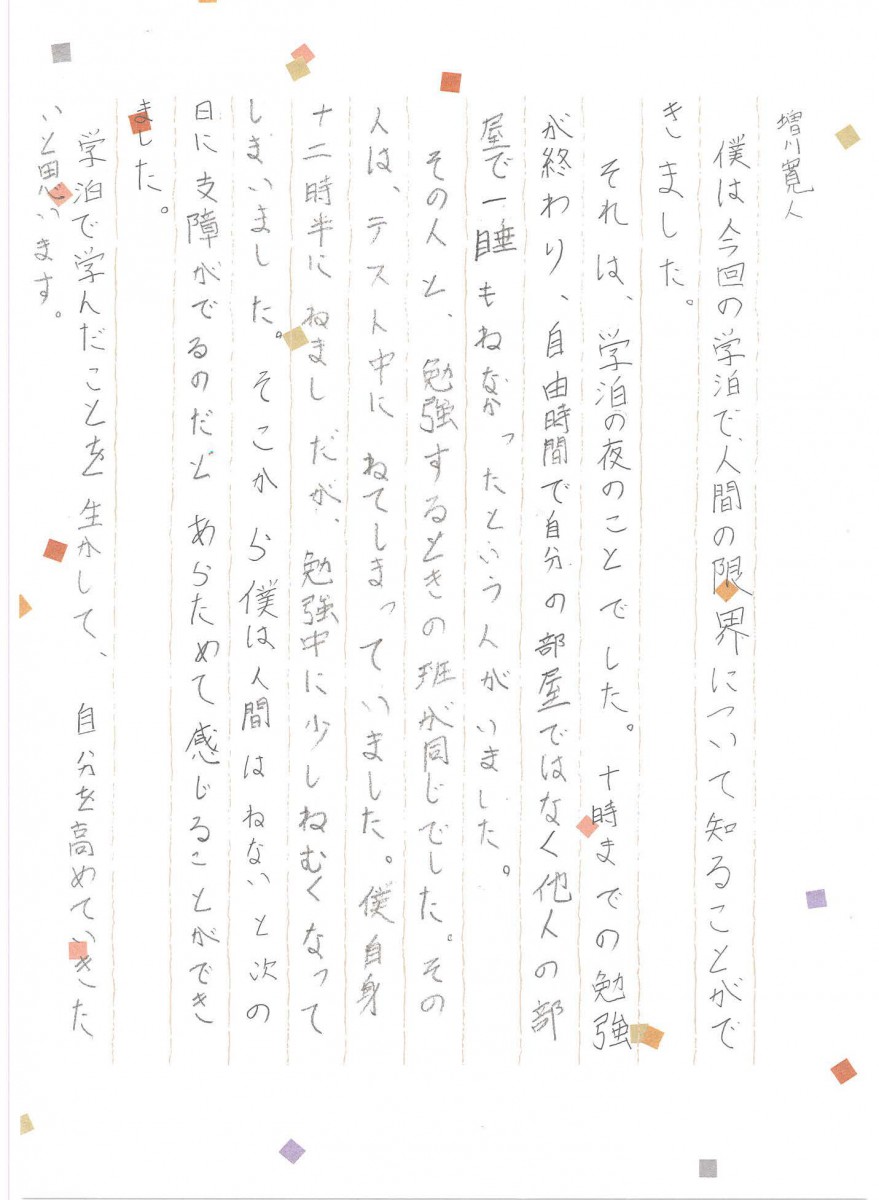 増川寛人
僕は今回の学泊で、人間の限界について知ることがで
きました。
それは、学泊の夜のことでした。十時までの勉強
が終わり、自由時間で自分の部屋ではなく他人の部
屋で一睡もねなかったという人がいました。
その人と、勉強するときの班が同じでした。その
人は、テスト中にねてしまっていました。僕自身
十二時半にねましだが、勉強中に少しねむくなって
しまいました。そこから僕は人間はねないと次の
日に支障がでるのだとあらためて感じることができ
ました。
学泊で学んだことを生かして、自分を高めていきた
いと思います。